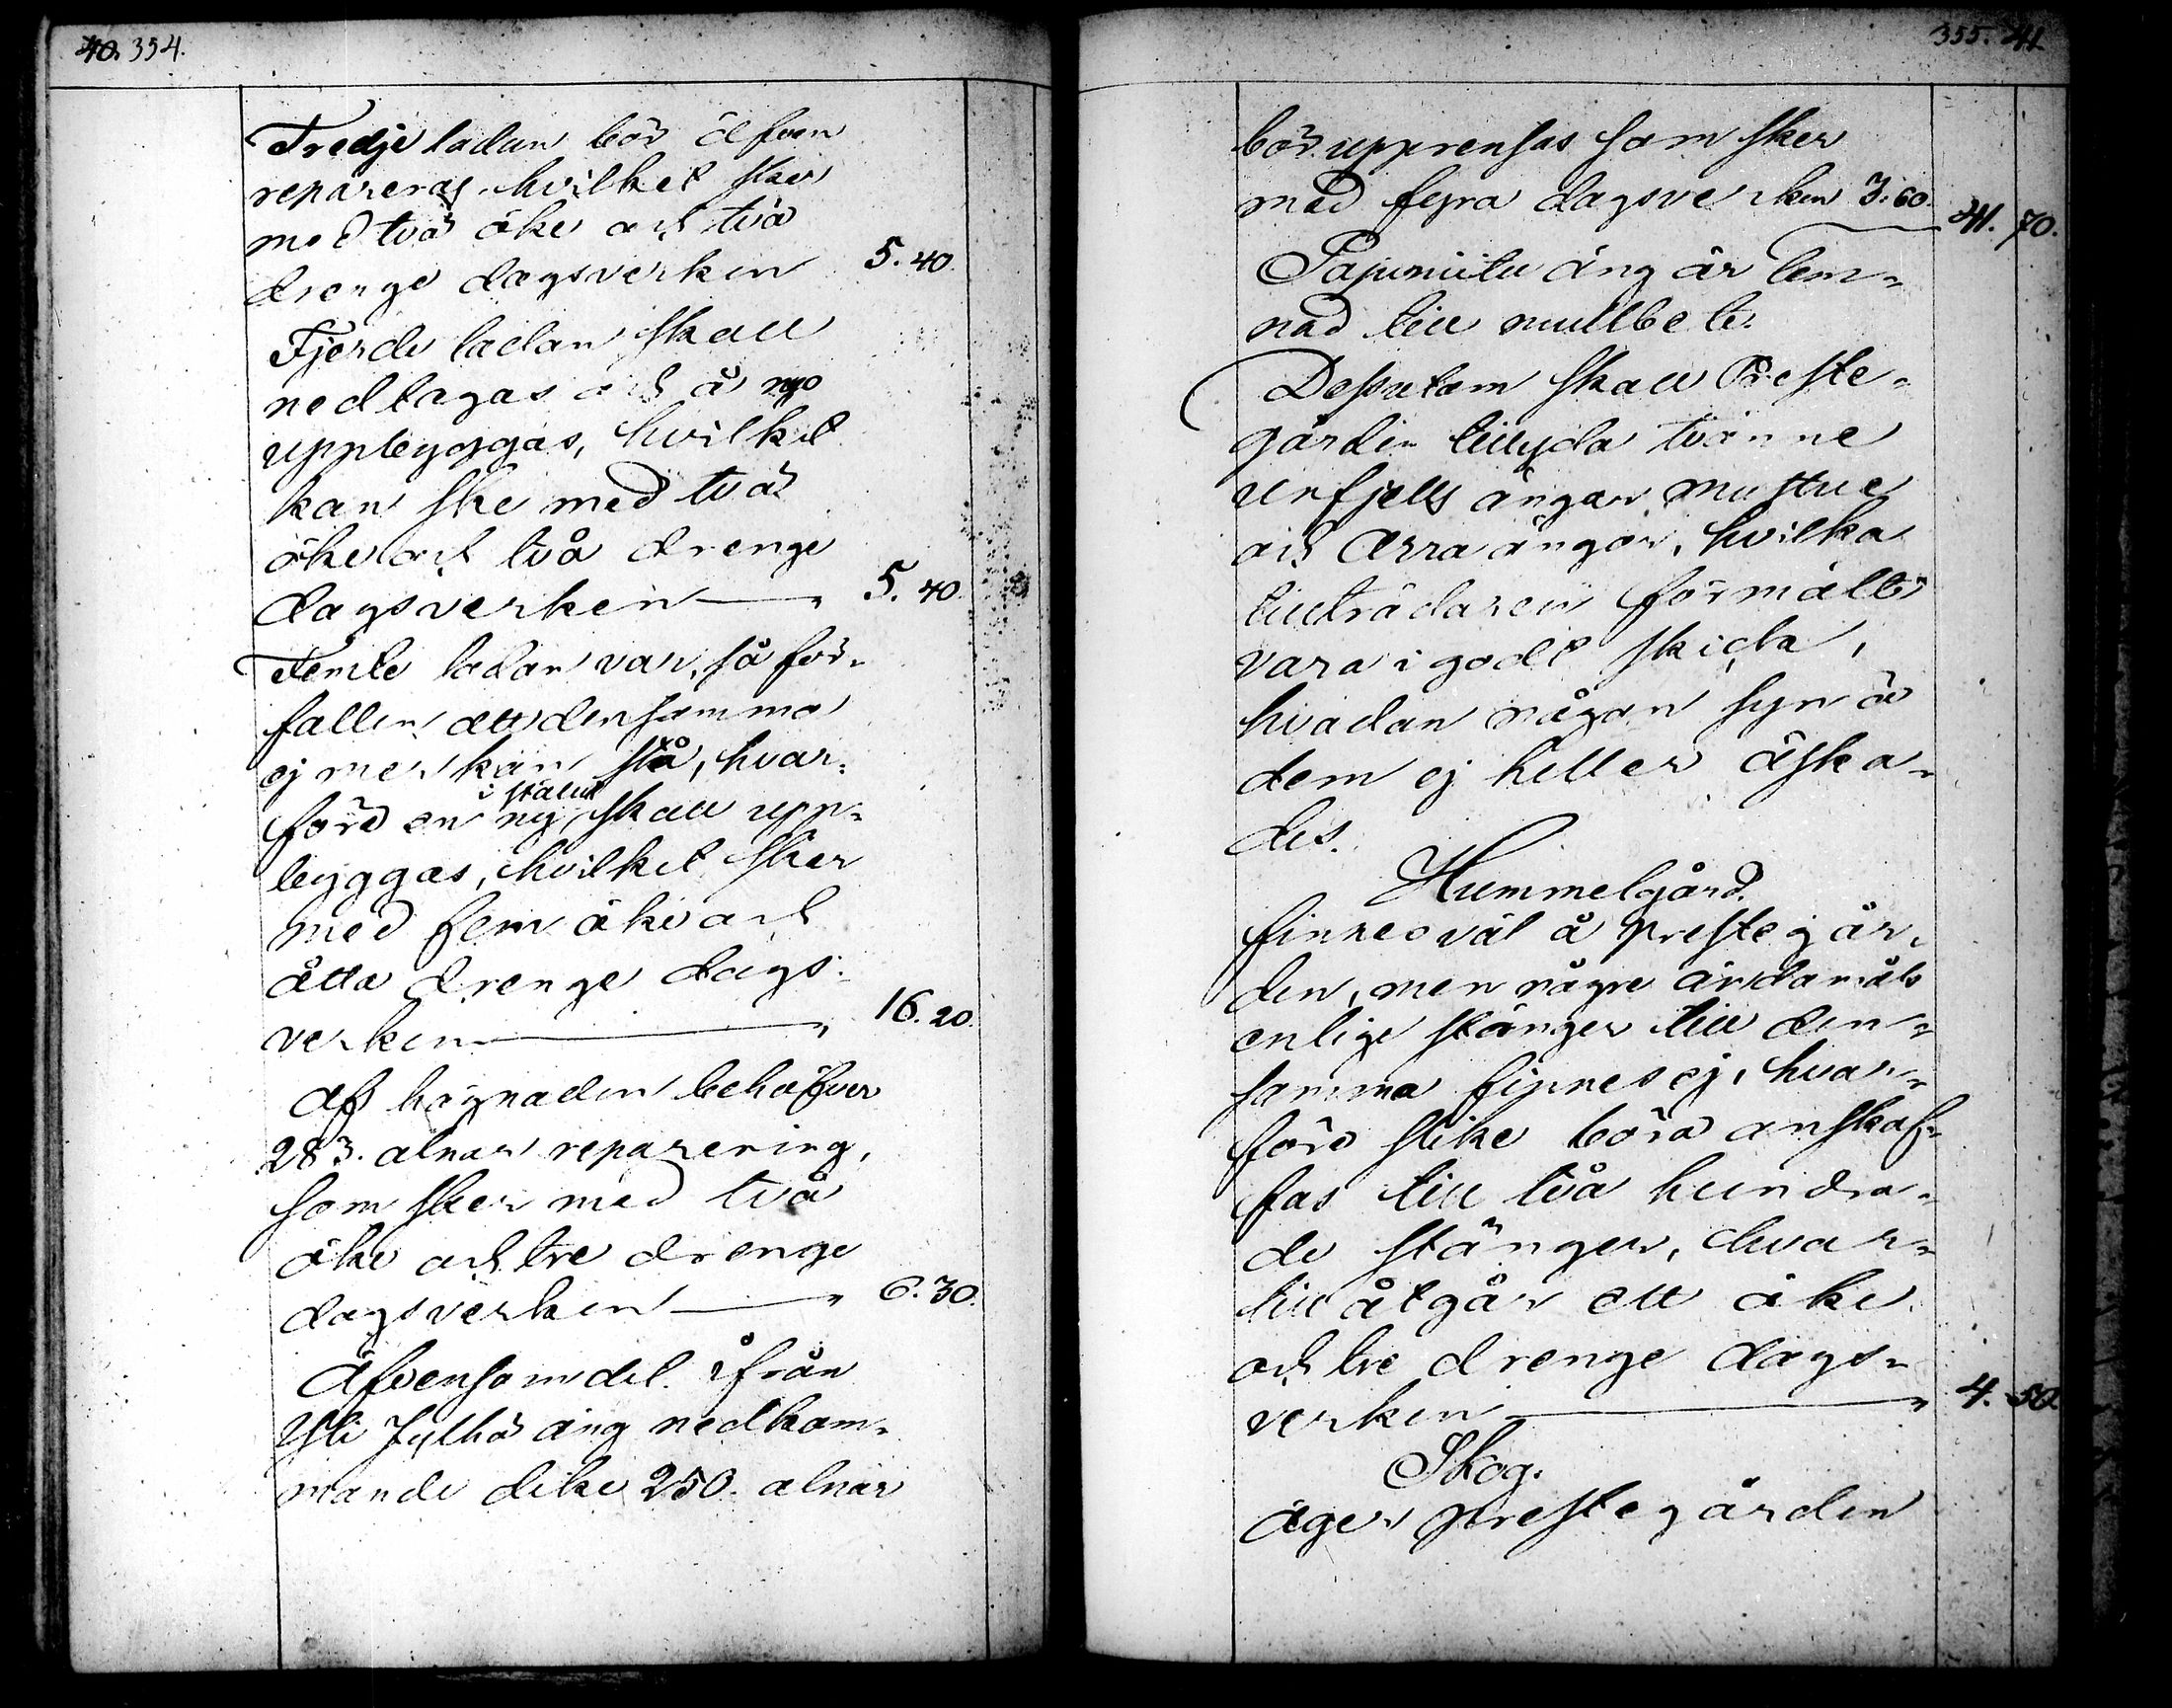 40. 354.
Tredje ladan bör äfven
repareras hvilket sker
med två öke och två
drenge dagsverken 5. 40.
Fjerde ladan skall
nedtagas och å nyo
uppbyggas, hvilket
kan ske med två
öke och två drenge
dagsverken — " 5. 40.
Femte ladan var så för-
fallen att densamma
ej mer kan stå, hvar-
före en ny i stället skall upp-
byggas, hvilket sker
med fem öke och
åtta drenge dags-
verken — " 16. 20.
Af hägnaden behöfver
283. alnar reparering,
som sker med två
öke och tre drenge
dagsverken — " 6. 30.
Äfvensom det ifrån
Yli Jylhö äng nedkom-
mande dike 250. alnar
355. 41
bör upprensas som sker
med fyra dagsverken 3. 60. 41. 70.
Pajuniitu äng är lem-
nad till mullbete.
Dessutom skall Preste-
gården tillyda tvänne
utfjells ängar Mustue
och Arra ängar, hvilka
tillträdaren förmälte
vara i godt skick,
hvadan någon syn å
dem ej heller äska-
des.
Hummelgård.
finnes väl å prestegår-
den, men någre ändamåls
enlige stänger till den-
samma finnes ej, hvar-
före slike böra anskaf-
fas till två hundra-
de stänger, hvar-
till åtgår ett öke
och tre drenge dags-
verken — " 4. 50
Skog.
äger prestegården